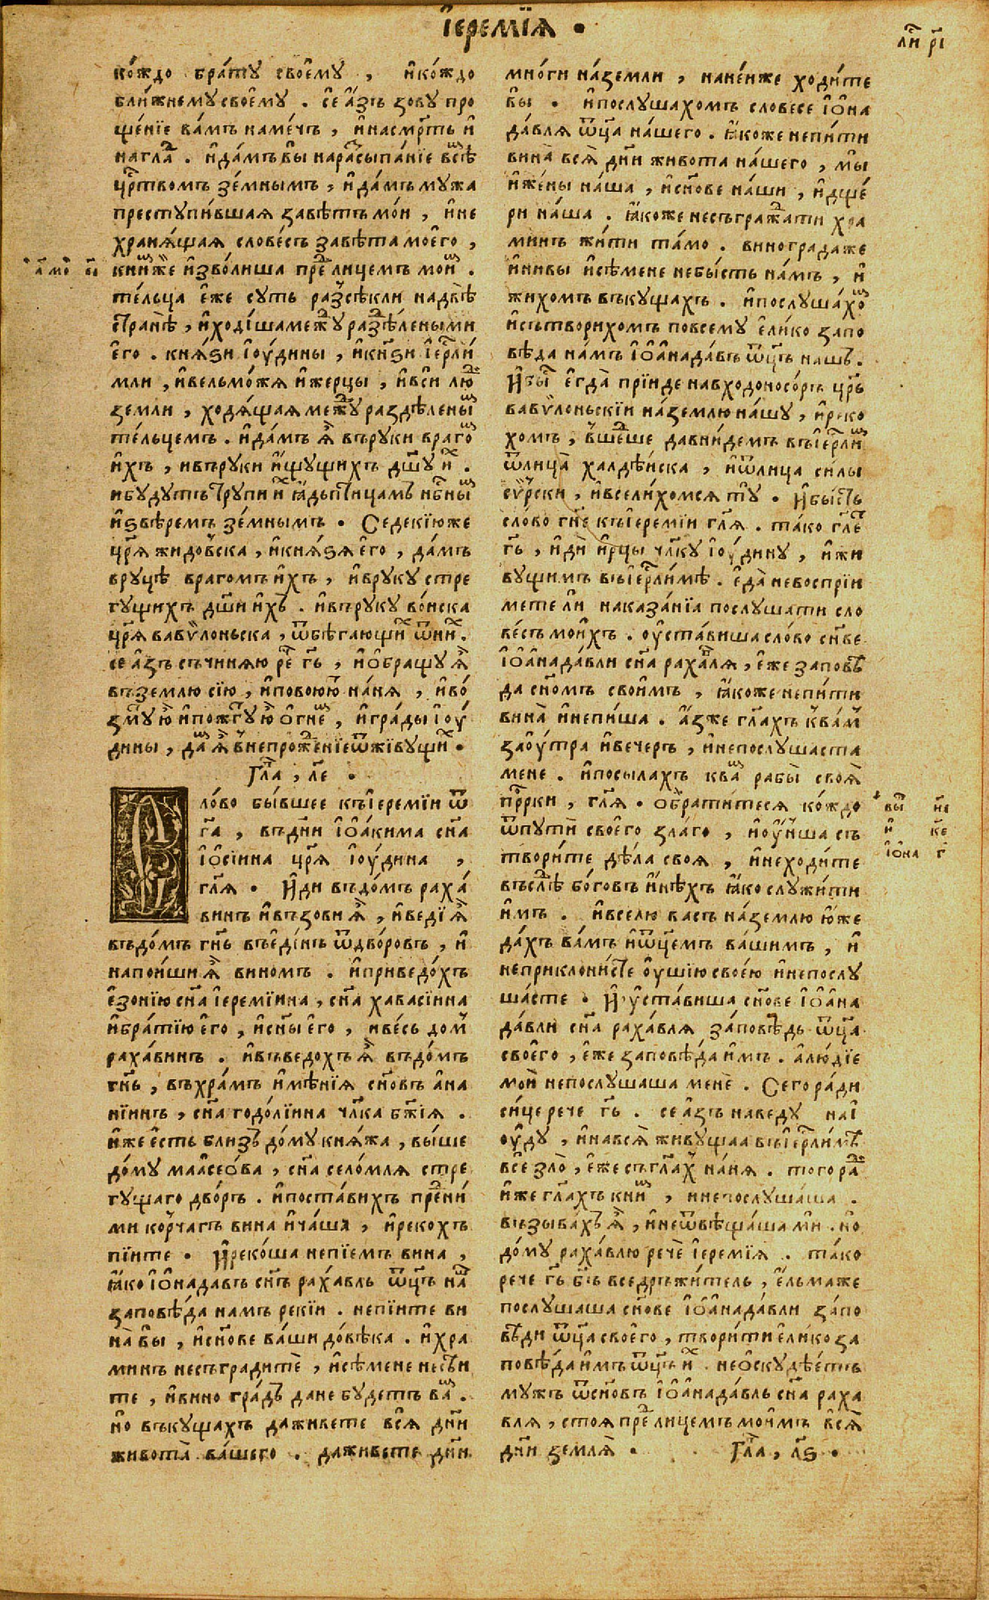 І҆еремі́ѧ .
ли҃ рі
ко́ждо бра́ту своє҆му , и҆ко́ждо
бли́жнемусвоє҆му . се а҆́зъ зову про
ще́нїе ва́мъ наме́чь , и҆насмр҃ть и҆
наглад . и҆да́мъ вы̀ нарасыпа́нїе всѣ
црⷭ҇твомъ зе́мнымъ , и҆да́мъ мужа
преступи́вшая заве́тъ мо́и , и҆не
храня́щая слове́съ заве́та мое҆го ,
книже и҆зво́лиша преⷣ лицемъ мои .
те́льца е҆́же суть разсѣкли надвѣ
странѣ , и҆ходи́шамежⷣу разⷣѣле́ными
е҆го . кня́ѕи і҆ю́дины , и҆кнѕи і҆ерⷭ҇ли́
мли , и҆вельмо́жа и҆жерцы , и҆вси люⷣ
земли , ходя́щая межⷣу раздѣлены
те́льцемъ . и҆да́мъ ѧ҆̀ въруки враго
и҆́хъ , ивъруки и҆́щущихъ дш҃у и҆ⷯ .
ибудутъ трупи и҆ⷯ ꙗ҆́дь птицамъ нбⷭ҇ны
и҆ѕвѣремъ зе́мнымъ . Седекїюже
црѧ҃ жидовска , и҆кня́ѕя е҆го , да́мъ
вруцѣ врагомъ и҆́хъ , и҆вруку стре
гущихъ дш҃и и҆хъ . и҆въруку во́иска
црѧ҃ вавѷлоньска , ѿбѣгающиⷯ ѿниⷯ .
се а҆́зъ съчиняю реⷱ҇ гь҃ , и҆ѡ҆бращу ѧ҆̀
въземлю сїю , и҆повоюю́ⷮ на́ня , и҆во́
змⷹ ю҆̀ и҆пожгу́ⷮ ю҆̀ ѻ҆гне , и҆гра́ды і҆ю́
дины , даⷨ ѧ҆̀ внепрожⷣе́нїеѿживущиⷯ .
Гла҃ , ле҃ .
Сло́во бы́вшее къі҆еремі́и ѿ
га҃ , въдни і҆ѡа҆́кима сн҃а
і҆ѡсі́ина црѧ҃ і҆ю́дина ,
глѧ҃ . И҆ди въдо́мъ раха́
винъ и҆възови ѧ҆̀ , и҆веди ѧ҆̀
въдо́мъ гн҃ь въе҆ди́нъ ѿдво́ровъ , и҆
напои́ши ѧ҆̀ виномъ . и҆приведо́хъ
е҆зонїю сн҃а і҆еремі́ина , сн҃а хавасі́ина
и҆бра́тїю е҆го , и҆сн҃ы е҆го , и҆ве́сь домⷨ
раха́винъ . и҆въведохъ ѧ҆̀ въдо́мъ
гн҃ь , въхра́мъ и҆мѣ́нїя сн҃овъ а҆на
ні́инъ , сн҃а годо́лїина чл҃ка бж҃їя .
и҆же е҆сть бли́зъ до́му кня́жа , вы́ше
до́му маасео́ва , сн҃а село́мля стре
гущаго дво́ръ . и҆поста́вихъ преⷣни́
ми корча́гъ вина и҆ча́шя , и҆рекохъ
пїите . И҆реко́ша непїемъ вина ,
ꙗ҆ко і҆ѡ҆надавъ сн҃ъ раха́вль ѿц҃ъ наⷲ
заповѣ́да намъ рекїи . непїи́те ви
на̀ вы̀ , и҆сн҃ове ва́ши до́вѣка . и҆хра
минъ несъградитѐ , и҆сѣ́мене несѣи
те , и҆вино гра́дъ дане будетъ ваⷨ .
но̀ въкущахъ даживете всѧ̀ дни
живота̀ ва́шего . даживете дни
мно́ги на́земли , нане́иже ходи́те
вы̀ . и҆послушахомъ словесе і҆ѡ҆на
да́вля ѿц҃а на́шего . ꙗ҆коже непи́ти
вина̀ всѧ̀ дни живота на́шего , мы̀
и҆же́ны на́ша , и҆сн҃ове на́ши , и҆дще́
ри на́ша . ꙗ҆коже несъгражⷣати хра
минъ жи́ти та́мо . виноградаже
и҆нивы и҆сѣ́мене небы́сть на́мъ , и҆
жихомъ въкущахъ . и҆послуша́хоⷨ
и҆сътворихомъ повсему е҆ли́ко запо
вѣда на́мъ і҆ѡ҆нада́въ ѿц҃ъ нашъ .
И҆быⷭ҇ е҆гда̀ прїиде навходоносо́ръ цр҃ь
вавѷлоньскїи на́землю на́шу , и҆реко
хомъ , вшеⷣше давни́демъ въі҆ерⷭ҇ли
ѿлица̀ халде́иска , и҆ѿлица си́лы
сѷрски , и҆всели́хомся тꙋ̀ . И҆бысть
сло́во гн҃е къі҆еремі́и глѧ҃ . тако гл҃еⷮ
гь҃ , и҆дѝ и҆рцы чл҃ку і҆ю́дину , и҆жи
вущимъ въі҆ерⷭ҇ли́мѣ . е҆да̀ невоспрїи
мете ли̏ наказа́нїа послушати сло
ве́съ мои́хъ . оу҆ста́виша сло́во сн҃ове
і҆ѡ҆нада́вли сн҃а раха́вля , е҆же заповѣ
да сн҃омъ свои́мъ , ꙗ҆коже непи́ти
вина̀ и҆непи́ша . а҆́зже гл҃ахъ квамⷨ
заоу́тра и҆вечеръ , и҆непослушаста
мене . и҆посылахъ кваⷨ рабы̀ своѧ̀
прⷪ҇рки , глѧ҃ . ѡ҆брати́теся ко́ждо
ѿпути̏ свое҆го зла́го , и҆оу҆н́ша съ
твори́те дѣ́ла своя , и҆неходи́те
въслѣⷣ бо́говъ и҆нѣхъ ꙗ҆ко служи́ти
и҆мъ . и҆вселю васъ на́землю ю҆́же
да́хъ ва́мъ и҆ѿц҃емъ ва́шимъ , и҆
неприклони́сте оу҆шїю свое́ю и҆непослу
ша́сте . И҆ оу҆ста́виша сн҃ове і҆ѡ҆на
да́вли сн҃а раха́вля за́повѣдь ѿц҃а
свое҆го , е҆́же заповѣ́да и҆́мъ . а҆лю́дїе
мои̏ непослушаша мене̏ . Сего ра́ди
си́це рече гь҃ . се а҆́зъ наведу наі
ю́ду , и҆навсѧ̀ живущаа въі҆ерⷭ҇ли́мѣ
все̏ зло̏ , е҆́же съгл҃ахъ на́ня . того раⷣ
и҆же гл҃ахъ книⷨ , и҆непослуша́ша .
възыва́хъ ѧ҆̀ , и҆неѿвѣща́ша мѝ . но̀
до́му раха́влю рече̏ і҆еремі́я . та́ко
рече гь҃ бг҃ъ вседръжи́тель , е҆льмаже
послушаша сн҃ове і҆ѡ҆нада́вли за́по
вѣди ѿц҃а свое҆го , твори́ти е҆ли́ко за
повѣ́да и҆мъ ѿц҃ъ и҆ⷯ . неѡ҆скудѣ́етъ
мужъ ѿсн҃овъ і҆ѡ҆нада́вль сн҃а раха
вля , стоя преⷣ лицемъ мои҆мъ всѧ̀
дни земля̀ . Гла҃ , лѕ҃ .